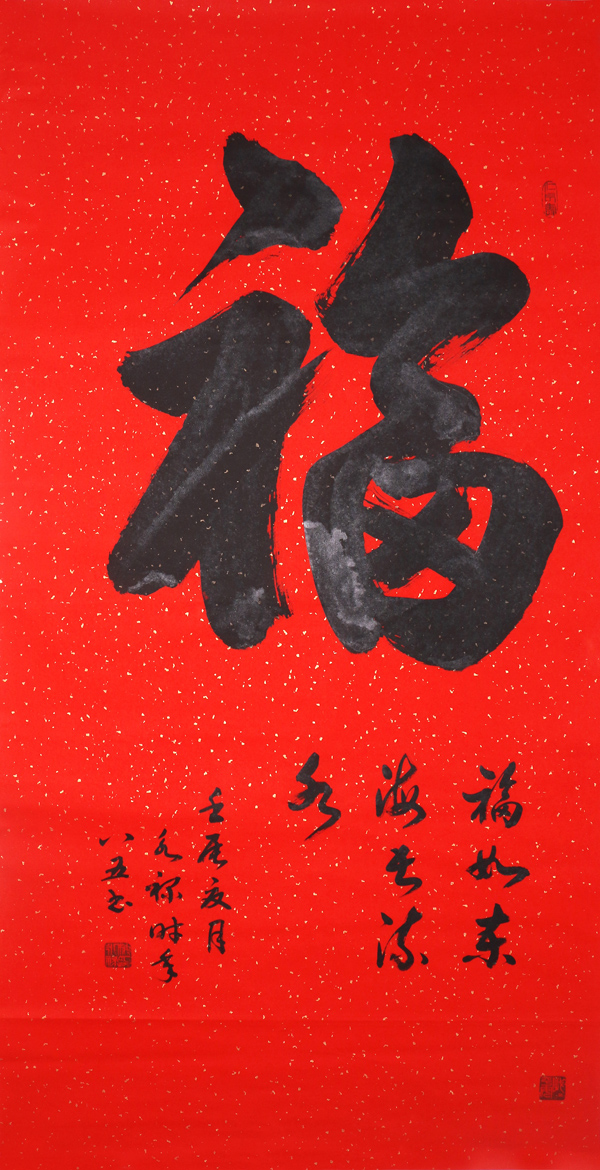 福
福如东
海长流
水
壬辰夏月
禄时年
八五书